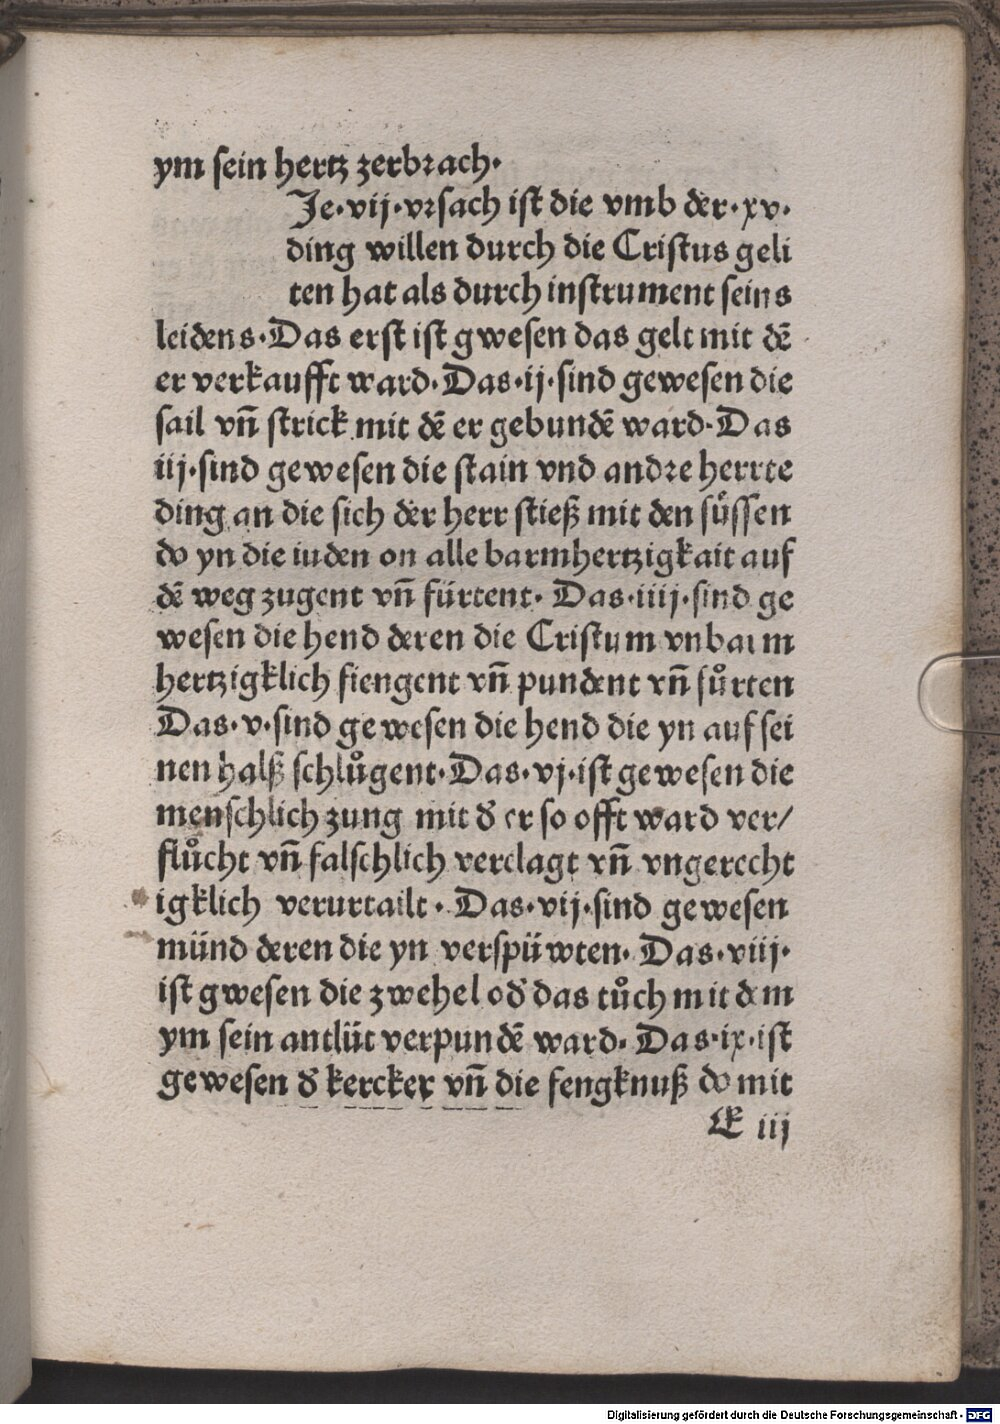 ym sein hertz zerbrach·
Je·vij·vrsach ist die vmb der·xv·
ding willen durch die Cristus geli
ten hat als durch instrument seins
leidens·Das erst ist gwesen das gelt mit dē
er verkaufft ward·Das·ij·sind gewesen die
sail vñ strick mit dē er gebundē ward·Das
iij·sind gewesen die stain vnd andre herrte
ding an die sich der herr stieß mit den füssen
do yn die iuden on alle barmhertzigkait auf
dē weg zugent vñ fürtent· Das·iiij·sind ge
wesen die hend deren die Cristum vnbarm
hertzigklich fiengent vñ pundent vñ fůrten
Das·v·sind gewesen die hend die yn auf sei
nen halß schlůgent·Das·vj·ist gewesen die
menschlich zung mit d' er so offt ward ver/
flůcht vñ falschlich verclagt vñ vngerecht
igklich verurtailt· Das·vij·sind gewesen
münd deren die yn verspüwten· Das·viij·
ist gwesen die zwehel od' das tůch mit dem
ym sein antlüt verpundē ward· Das·ix·ist
gewesen d' kercker vñ die fengknuß do mit
k iij
Digitalisierung gefördert durch die Deutsche Forschungsgemeinschaft - DFG